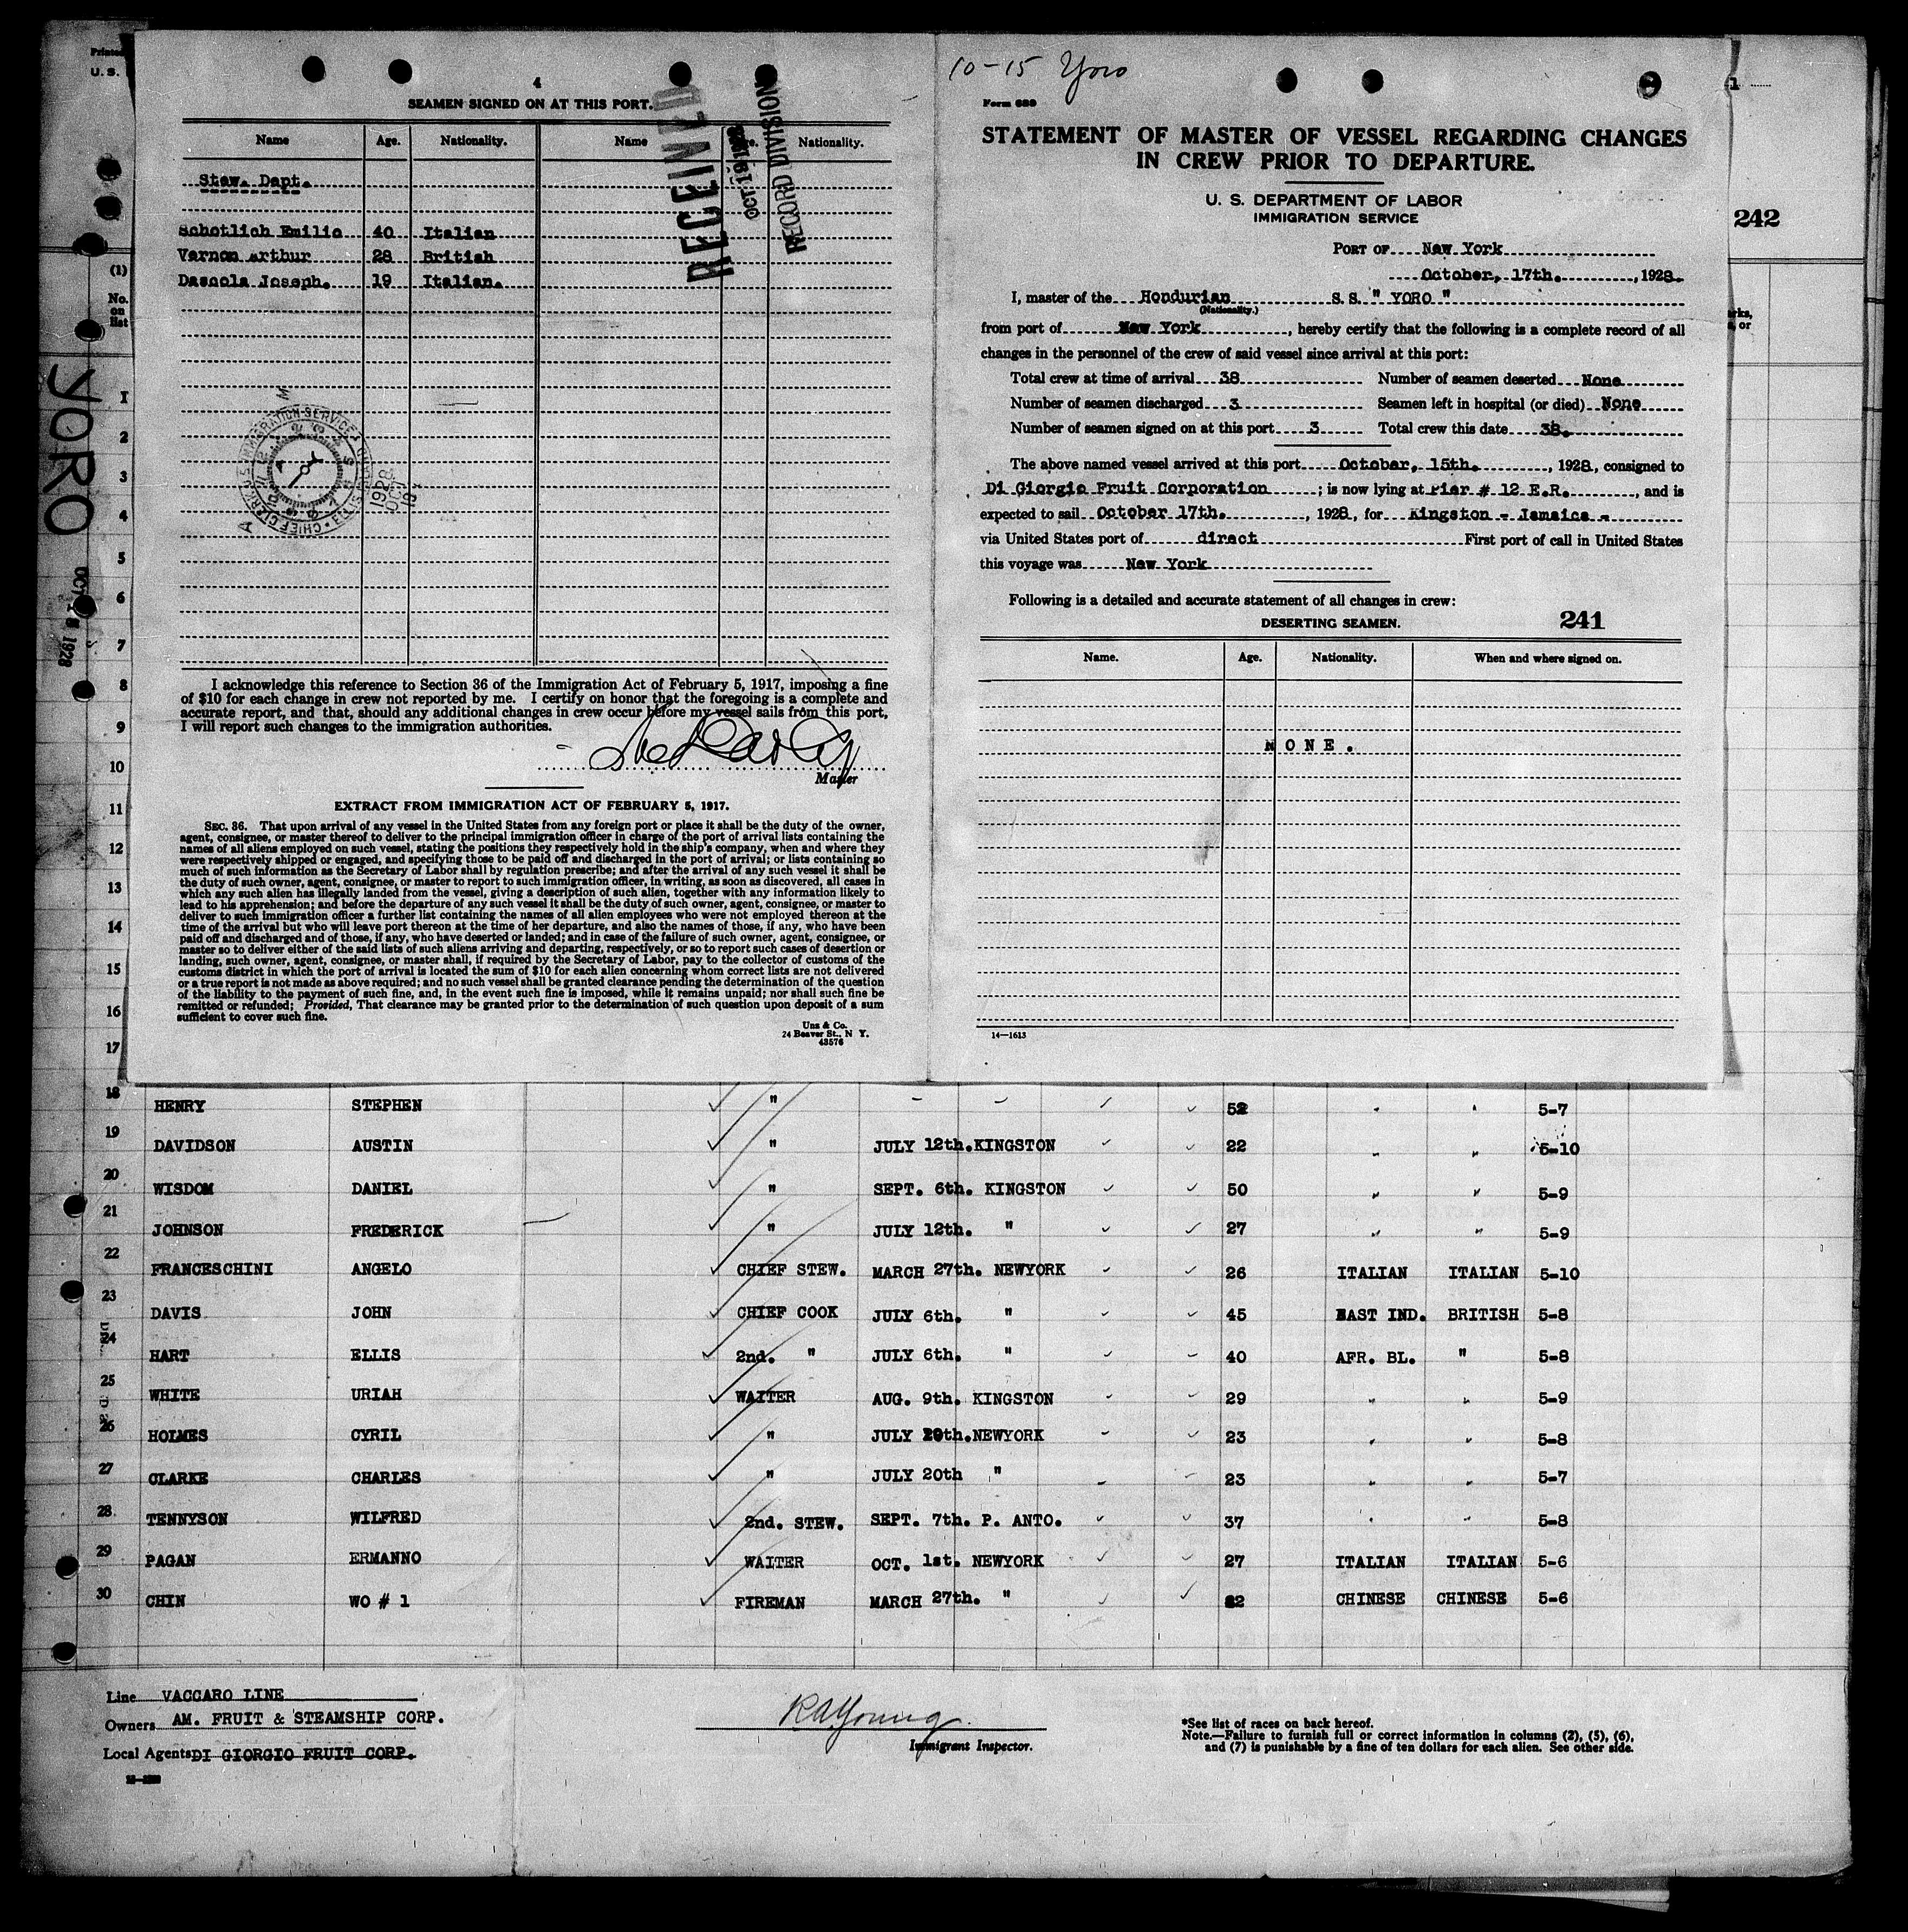 Printed
U. S.
4
SEAMEN SIGNED ON AT THIS PORT.
Name Age. Nationality. Name Nationality.
Stew. Dept.
Schotlich Emilio 40 Italian
Vernon Arthur 28 British
Dascola Joseph. 19 Italian.
RECEIVED
RECORD DIVISION
I acknowledge this reference to Section 36 of the Immigration Act of February 5, 1917, imposing a fine
of $10 for each change in crew not reported by me. I certify on honor that the foregoing is a complete and
accurate report, and that, should any additional changes in crew occur before my vessel sails from this port,
I will report such changes to the immigration authorities.
Master
EXTRACT FROM IMMIGRATION ACT OF FEBRUARY 5, 1917.
SEC. 36. That upon arrival of any vessel in the United States from any foreign port or place it shall be the duty of the owner,
agent, consignee, or master thereof to deliver to the principal immigration officer in charge of the port of arrival lists containing the
names of all aliens employed on such vessel, stating the positions they respectively hold in the ship's company, when and where they
were respectively shipped or engaged, and specifying those to be paid off and discharged in the port of arrival; or lists containing so
much of such information as the Secretary of Labor shall by regulation prescribe; and after the arrival of any such vessel it shall be
the duty of such owner, agent, consignee, or master to report to such immigration officer, in writing, as soon as discovered, all cases in
which any such alien has illegally landed from the vessel, giving a description of such alien, together with any information likely to
lead to his apprehension; and before the departure of any such vessel it shall be the duty of such owner, agent, consignee, or master to
deliver to such immigration officer a further list containing the names of all alien employees who were not employed thereon at the
time of the arrival but who will leave port thereon at the time of her departure, and also the names of those, if any, who have been
paid off and discharged and of those, if any, who have deserted or landed; and in case of the failure of such owner, agent, consignee, or
master so to deliver either of the said lists of such aliens arriving and departing, respectively, or so to report such cases of desertion or
landing, such owner, agent, consignee, or master shall, if required by the Secretary of Labor, pay to the collector of customs of the
customs district in which the port of arrival is located the sum of $10 for each alien concerning whom correct lists are not delivered
or a true report is not made as above required; and no such vessel shall be granted clearance pending the determination of the question
of the liability to the payment of such fine, and, in the event such fine is imposed, while it remains unpaid; nor shall such fine be
remitted or refunded; Provided, That clearance may be granted prior to the determination of such question upon deposit of a sum
sufficient to cover such fine.
Unz & Co.
24 Beaver St., N Y.
43576
10-15 Yoro
Form 689
STATEMENT OF MASTER OF VESSEL REGARDING CHANGES
IN CREW PRIOR TO DEPARTURE.
U. S. DEPARTMENT OF LABOR
IMMIGRATION SERVICE
PORT OF New York
October, 17th. , 1928.
I, master of the Hondurian S.S. " YORO "
(Nationality.)
from port of New York , hereby certify that the following is a complete record of all
changes in the personnel of the crew of said vessel since arrival at this port:
Total crew at time of arrival 38 Number of seamen deserted None
Number of seamen discharged 3 Seamen left in hospital (or died) None
Number of seamen signed on at this port 3 Total crew this date 38.
The above named vessel arrived at this port October, 15th. , 1928, consigned to
Di Giorgio Fruit Corporation ; is now lying at Pier # 12 E.R. , and is
expected to sail October 17th. , 1928, for Kingston - Jamaica -
via United States port of direct First port of call in United States
this voyage was New York
Following is a detailed and accurate statement of all changes in crew:
DESERTING SEAMEN. 241
Name. Age. Nationality. When and where signed on.
NONE.
14—1613
1
242
(1)
No.
on
list
YORO
1
2
3
4
5
6
7
8
9
10
11
12
13
14
15
16
17
18 HENRY STEPHEN " 52 5-7
19 DAVIDSON AUSTIN " JULY 12th. KINGSTON 22 " " 5-10
20 WISDOM DANIEL " SEPT. 6th. KINGSTON 50 " " 5-9
21 JOHNSON FREDERICK " JULY 12th. " 27 " " 5-9
22 FRANCESCHINI ANGELO CHIEF STEW. MARCH 27th. NEWYORK 26 ITALIAN ITALIAN 5-10
23 DAVIS JOHN CHIEF COOK JULY 6th. " 45 EAST IND. BRITISH 5-8
24 HART ELLIS 2nd. " JULY 6th. " 40 AFR. BL. " 5-8
25 WHITE URIAH WAITER AUG. 9th. KINGSTON 29 " " 5-9
26 HOLMES CYRIL " JULY 20th. NEWYORK 23 " " 5-8
27 CLARKE CHARLES " JULY 20th " 23 " " 5-7
28 TENNYSON WILFRED 2nd. STEW. SEPT. 7th. P. ANTO. 37 " " 5-8
29 PAGAN ERMANNO WAITER OCT. 1st. NEWYORK 27 ITALIAN ITALIAN 5-6
30 CHIN WO # 1 FIREMAN MARCH 27th. " CHINESE CHINESE 5-6
Line VACCARO LINE
Owners AM. FRUIT & STEAMSHIP CORP.
Local Agents DI GIORGIO FRUIT CORP.
RAYoung
Immigrant Inspector.
*See list of races on back hereof.
Note.—Failure to furnish full or correct information in columns (2), (5), (6),
and (7) is punishable by a fine of ten dollars for each alien. See other side.